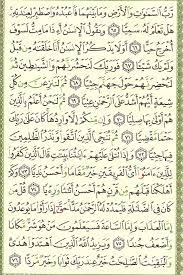 رَّبُّ ٱلسَّمَٰوَٰتِ وَٱلْأَرْضِ وَمَا بَيْنَهُمَا فَٱعْبُدْهُ وَٱصْطَبِرْ لِعِبَٰدَتِهِۦ
هَلْ تَعْلَمُ لَهُۥ سَمِيًّا ٦٥ وَيَقُولُ ٱلْإِنسَٰنُ أَءِذَا مَا مِتُّ لَسَوْفَ
أُخْرَجُ حَيًّا ٦٦ أَوَلَا يَذْكُرُ ٱلْإِنسَٰنُ أَنَّا خَلَقْنَٰهُ مِن قَبْلُ
وَلَمْ يَكُ شَيْـًٔا ٦٧ فَوَرَبِّكَ لَنَحْشُرَنَّهُمْ وَٱلشَّيَٰطِينَ ثُمَّ
لَنُحْضِرَنَّهُمْ حَوْلَ جَهَنَّمَ جِثِيًّا ٦٨ ثُمَّ لَنَنزِعَنَّ مِن كُلِّ
شِيعَةٍ أَيُّهُمْ أَشَدُّ عَلَى ٱلرَّحْمَٰنِ عِتِيًّا ٦٩ ثُمَّ لَنَحْنُ أَعْلَمُ بِٱلَّذِينَ
هُمْ أَوْلَىٰ بِهَا صِلِيًّا ٧٠ وَإِن مِّنكُمْ إِلَّا وَارِدُهَا كَانَ عَلَىٰ رَبِّكَ
حَتْمًا مَّقْضِيًّا ٧١ ثُمَّ نُنَجِّى ٱلَّذِينَ ٱتَّقَوا۟ وَّنَذَرُ ٱلظَّٰلِمِينَ
فِيهَا جِثِيًّا ٧٢ وَإِذَا تُتْلَىٰ عَلَيْهِمْ ءَايَٰتُنَا بَيِّنَٰتٍ قَالَ ٱلَّذِينَ كَفَرُوا۟
لِلَّذِينَ ءَامَنُوٓا۟ أَىُّ ٱلْفَرِيقَيْنِ خَيْرٌ مَّقَامًا وَأَحْسَنُ نَدِيًّا ٧٣ وَكَمْ
أَهْلَكْنَا قَبْلَهُم مِّن قَرْنٍ هُمْ أَحْسَنُ أَثَٰثًا وَرِءْيًا ٧٤ قُلْ مَن كَانَ
فِى ٱلضَّلَٰلَةِ فَلْيَمْدُدْ لَهُ ٱلرَّحْمَٰنُ مَدًّا حَتَّىٰٓ إِذَا رَأَوْا۟ مَا يُوعَدُونَ
إِمَّا ٱلْعَذَابَ وَإِمَّا ٱلسَّاعَةَ فَسَيَعْلَمُونَ مَنْ هُوَ شَرٌّ مَّكَانًا
وَأَضْعَفُ جُندًا ٧٥ وَيَزِيدُ ٱللَّهُ ٱلَّذِينَ ٱهْتَدَوْا۟ هُدًى
وَٱلْبَٰقِيَٰتُ ٱلصَّٰلِحَٰتُ خَيْرٌ عِندَ رَبِّكَ ثَوَابًا وَخَيْرٌ مَّرَدًّا ٧٦